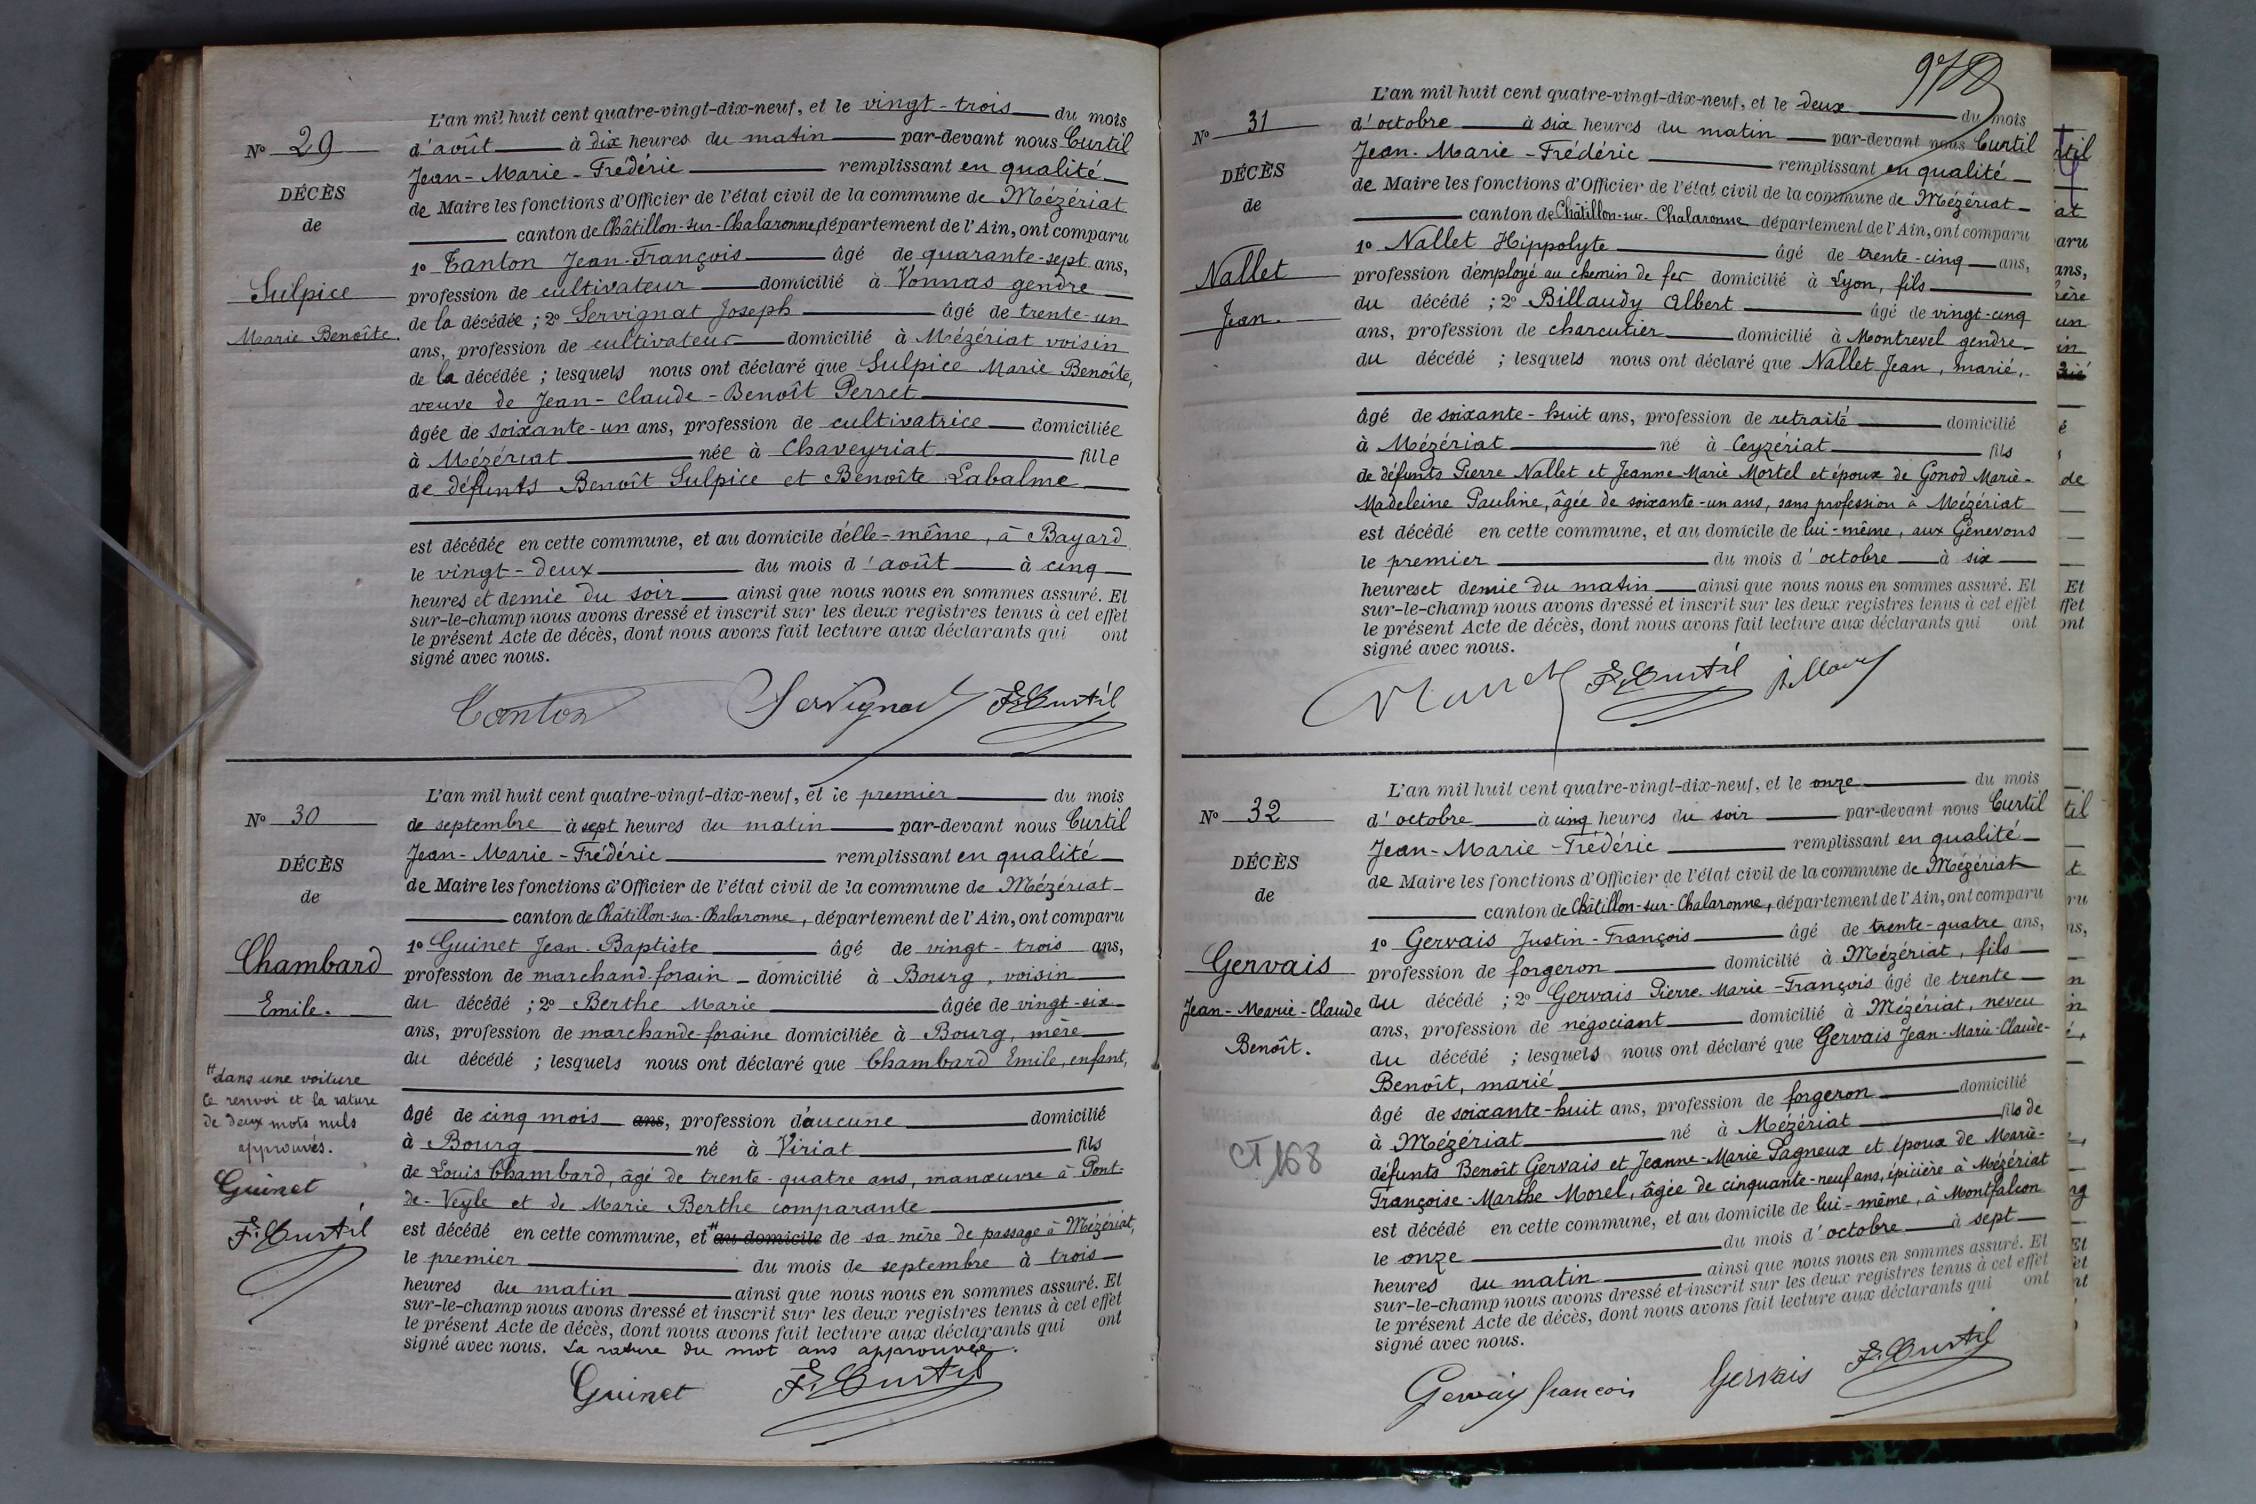 L'an mil huit cent quatre-vingt-dix-neuf, et le vingt-trois du mois
N° 29
d'août à dix heures du matin par-devant nous Curtil
Jean-Marie-Frédéric remplissant en qualité
DÉCÈS
de Maire les fonctions d'Officier de l'état civil de la commune de Mézériat
de
canton de Châtillon-sur-Chalaronne, département de l'Ain, ont comparu
1° Tanton Jean-François âgé de quarante-sept ans,
Sulpice
profession de cultivateur domicilié à Vonnas gendre
de la décédée ; 2° Servignat Joseph âgé de trente-un
Marie Benoîte.
ans, profession de cultivateur domicilié à Mézériat voisin
de la décédée ; lesquels nous ont déclaré que Sulpice Marie Benoîte,
veuve de Jean-Claude-Benoît Perret
âgée de soixante-un ans, profession de cultivatrice domiciliée
à Mézériat née à Chaveyriat fille
de défunts Benoît Sulpice et Benoîte Labalme
est décédée en cette commune, et au domicile d'elle-même, à Bayard
le vingt-deux du mois d'août à cinq
heures et demie du soir ainsi que nous nous en sommes assuré. Et
sur-le-champ nous avons dressé et inscrit sur les deux registres tenus à cet effet
le présent Acte de décès, dont nous avons fait lecture aux déclarants qui ont
signé avec nous.
Tanton Servignat F. Curtil
L'an mil huit cent quatre-vingt-dix-neuf, et le premier du mois
N° 30
de septembre à sept heures du matin par-devant nous Curtil
Jean-Marie-Frédéric remplissant en qualité
DÉCÈS
de Maire les fonctions d'Officier de l'état civil de la commune de Mézériat
de
canton de Châtillon-sur-Chalaronne, département de l'Ain, ont comparu
1° Guinet Jean-Baptiste âgé de vingt-trois ans,
Chambard
profession de marchand-forain domicilié à Bourg, voisin
du décédé ; 2° Berthe Marie âgée de vingt-six
Emile.
ans, profession de marchande foraine domiciliée à Bourg, mère
du décédé ; lesquels nous ont déclaré que Chambard Emile, enfant,
dans une voiture
Ce renvoi et la rature
de deux mots nuls
approuvés.
Guinet
F. Curtil
âgé de cinq mois ans, profession d'aucune domicilié
à Bourg né à Viriat fils
de Louis Chambard, âgé de trente-quatre ans, manœuvre à Pont-
de-Veyle et de Marie Berthe comparante
est décédé en cette commune, et au domicile de sa mère de passage à Mézériat,
le premier du mois de septembre à trois
heures du matin ainsi que nous nous en sommes assuré. Et
sur-le-champ nous avons dressé et inscrit sur les deux registres tenus à cet effet
le présent Acte de décès, dont nous avons fait lecture aux déclarants qui ont
signé avec nous. La rature du mot ans approuvée.
Guinet F. Curtil
L'an mil huit cent quatre-vingt-dix-neuf, et le deux du mois
N° 31
d'octobre à six heures du matin par-devant nous Curtil
Jean-Marie-Frédéric remplissant en qualité
DÉCÈS
de Maire les fonctions d'Officier de l'état civil de la commune de Mézériat
de
canton de Châtillon-sur-Chalaronne département de l'Ain, ont comparu
1° Nallet Hippolyte âgé de trente-cinq ans,
Nallet
profession d'employé au chemin de fer domicilié à Lyon, fils
du décédé ; 2° Billaudy Albert âgé de vingt-cinq
Jean.
ans, profession de charcutier domicilié à Montrevel gendre
du décédé ; lesquels nous ont déclaré que Nallet Jean, marié,
âgé de soixante-huit ans, profession de retraité domicilié
à Mézériat né à Ceyzériat fils
de défunts Pierre Nallet et Jeanne-Marie Mortel et époux de Gonod Marie-
Madeleine Pauline, âgée de soixante-un ans, sans profession à Mézériat
est décédé en cette commune, et au domicile de lui-même, aux Génevons
le premier du mois d'octobre à six
heures et demie du matin ainsi que nous nous en sommes assuré. Et
sur-le-champ nous avons dressé et inscrit sur les deux registres tenus à cet effet
le présent Acte de décès, dont nous avons fait lecture aux déclarants qui ont
signé avec nous.
F. Curtil
L'an mil huit cent quatre-vingt-dix-neuf, et le onze du mois
N° 32
d'octobre à cinq heures du soir par-devant nous Curtil
Jean-Marie-Frédéric remplissant en qualité
DÉCÈS
de Maire les fonctions d'Officier de l'état civil de la commune de Mézériat
de
canton de Châtillon-sur-Chalaronne, département de l'Ain, ont comparu
1° Gervais Justin-François âgé de trente-quatre ans,
Gervais
profession de forgeron domicilié à Mézériat, fils
Jean-Marie-Claude
du décédé ; 2° Gervais Pierre-Marie-François âgé de trente
ans, profession de négociant domicilié à Mézériat, neveu
Benoît.
du décédé ; lesquels nous ont déclaré que Gervais Jean-Marie-Claude-
Benoît, marié
âgé de soixante-huit ans, profession de forgeron domicilié
à Mézériat né à Mézériat fils de
CT 168
défunts Benoît Gervais et Jeanne-Marie Pagneux et époux de Marie-
Françoise-Marthe Morel, âgée de cinquante-neuf ans, épicière à Mézériat
est décédé en cette commune, et au domicile de lui-même, à Montfalcon
le onze du mois d'octobre à sept
heures du matin ainsi que nous nous en sommes assuré. Et
sur-le-champ nous avons dressé et inscrit sur les deux registres tenus à cet effet
le présent Acte de décès, dont nous avons fait lecture aux déclarants qui ont
signé avec nous.
Gervais françois Gervais F. Curtil